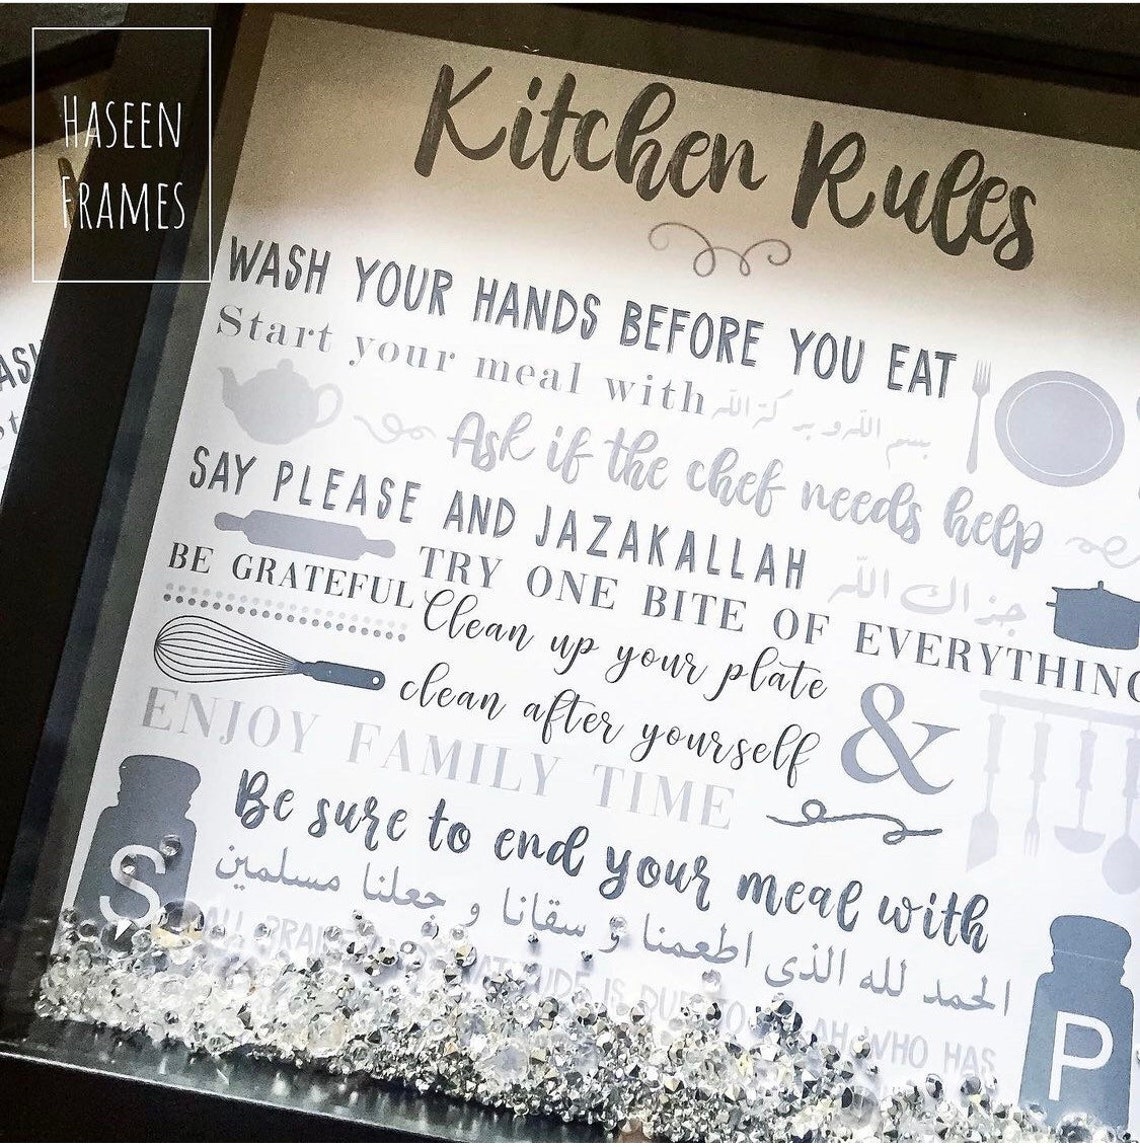 HASEEN
FRAMES
Kitchen Rules
WASH YOUR HANDS BEFORE YOU EAT
Start your meal with بسم الله و بركة الله
Ask if the chef needs help
SAY PLEASE AND JAZAKALLAH جزاك الله
BE GRATEFUL TRY ONE BITE OF EVERYTHING
Clean up your plate
&
clean after yourself
ENJOY FAMILY TIME
Be sure to end your meal with
الحمد لله الذى اطعمنا و سقانا و جعلنا مسلمين
ALL PRAISE IS DUE TO WHO HAS
S
P